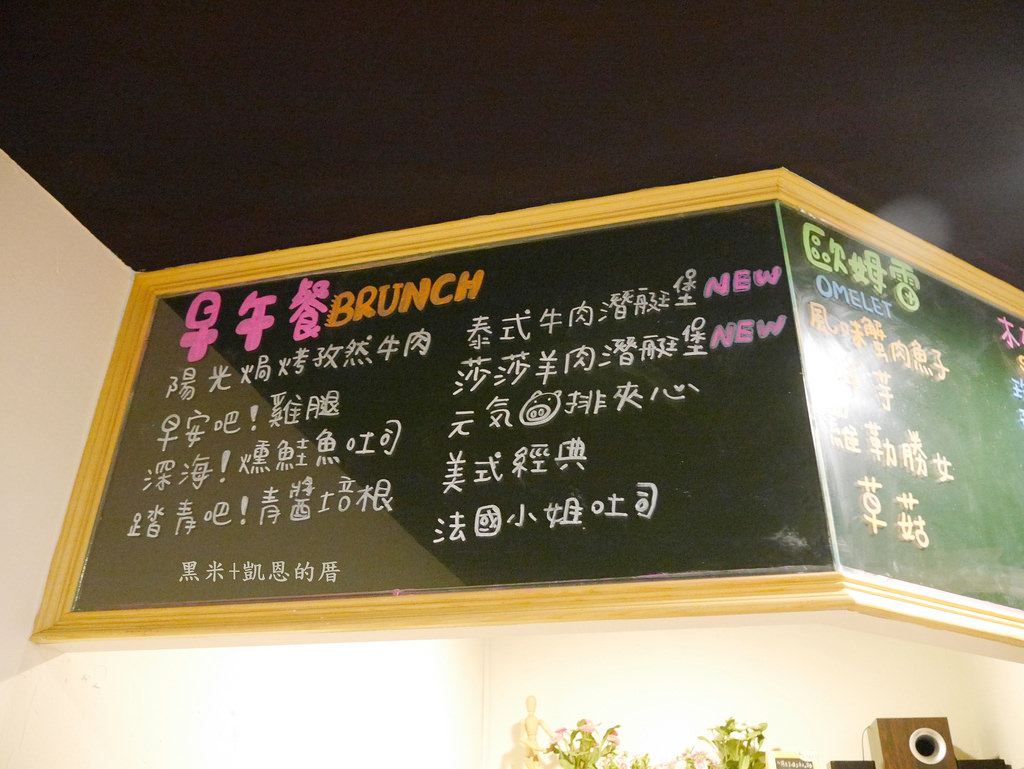 早午餐BRUNCH
陽光焗烤孜然牛肉
早安吧!雞腿
深海!燻鮭魚吐司
踏青吧!青醬培根
泰式牛肉潛艇堡NEW
莎莎羊肉潛艇堡NEW
元気排夾心
美式經典
法國小姐吐司
黑米+凱恩的厝
歐姆雷
OMELET
風味蟹肉魚子
勒勝女
草菇